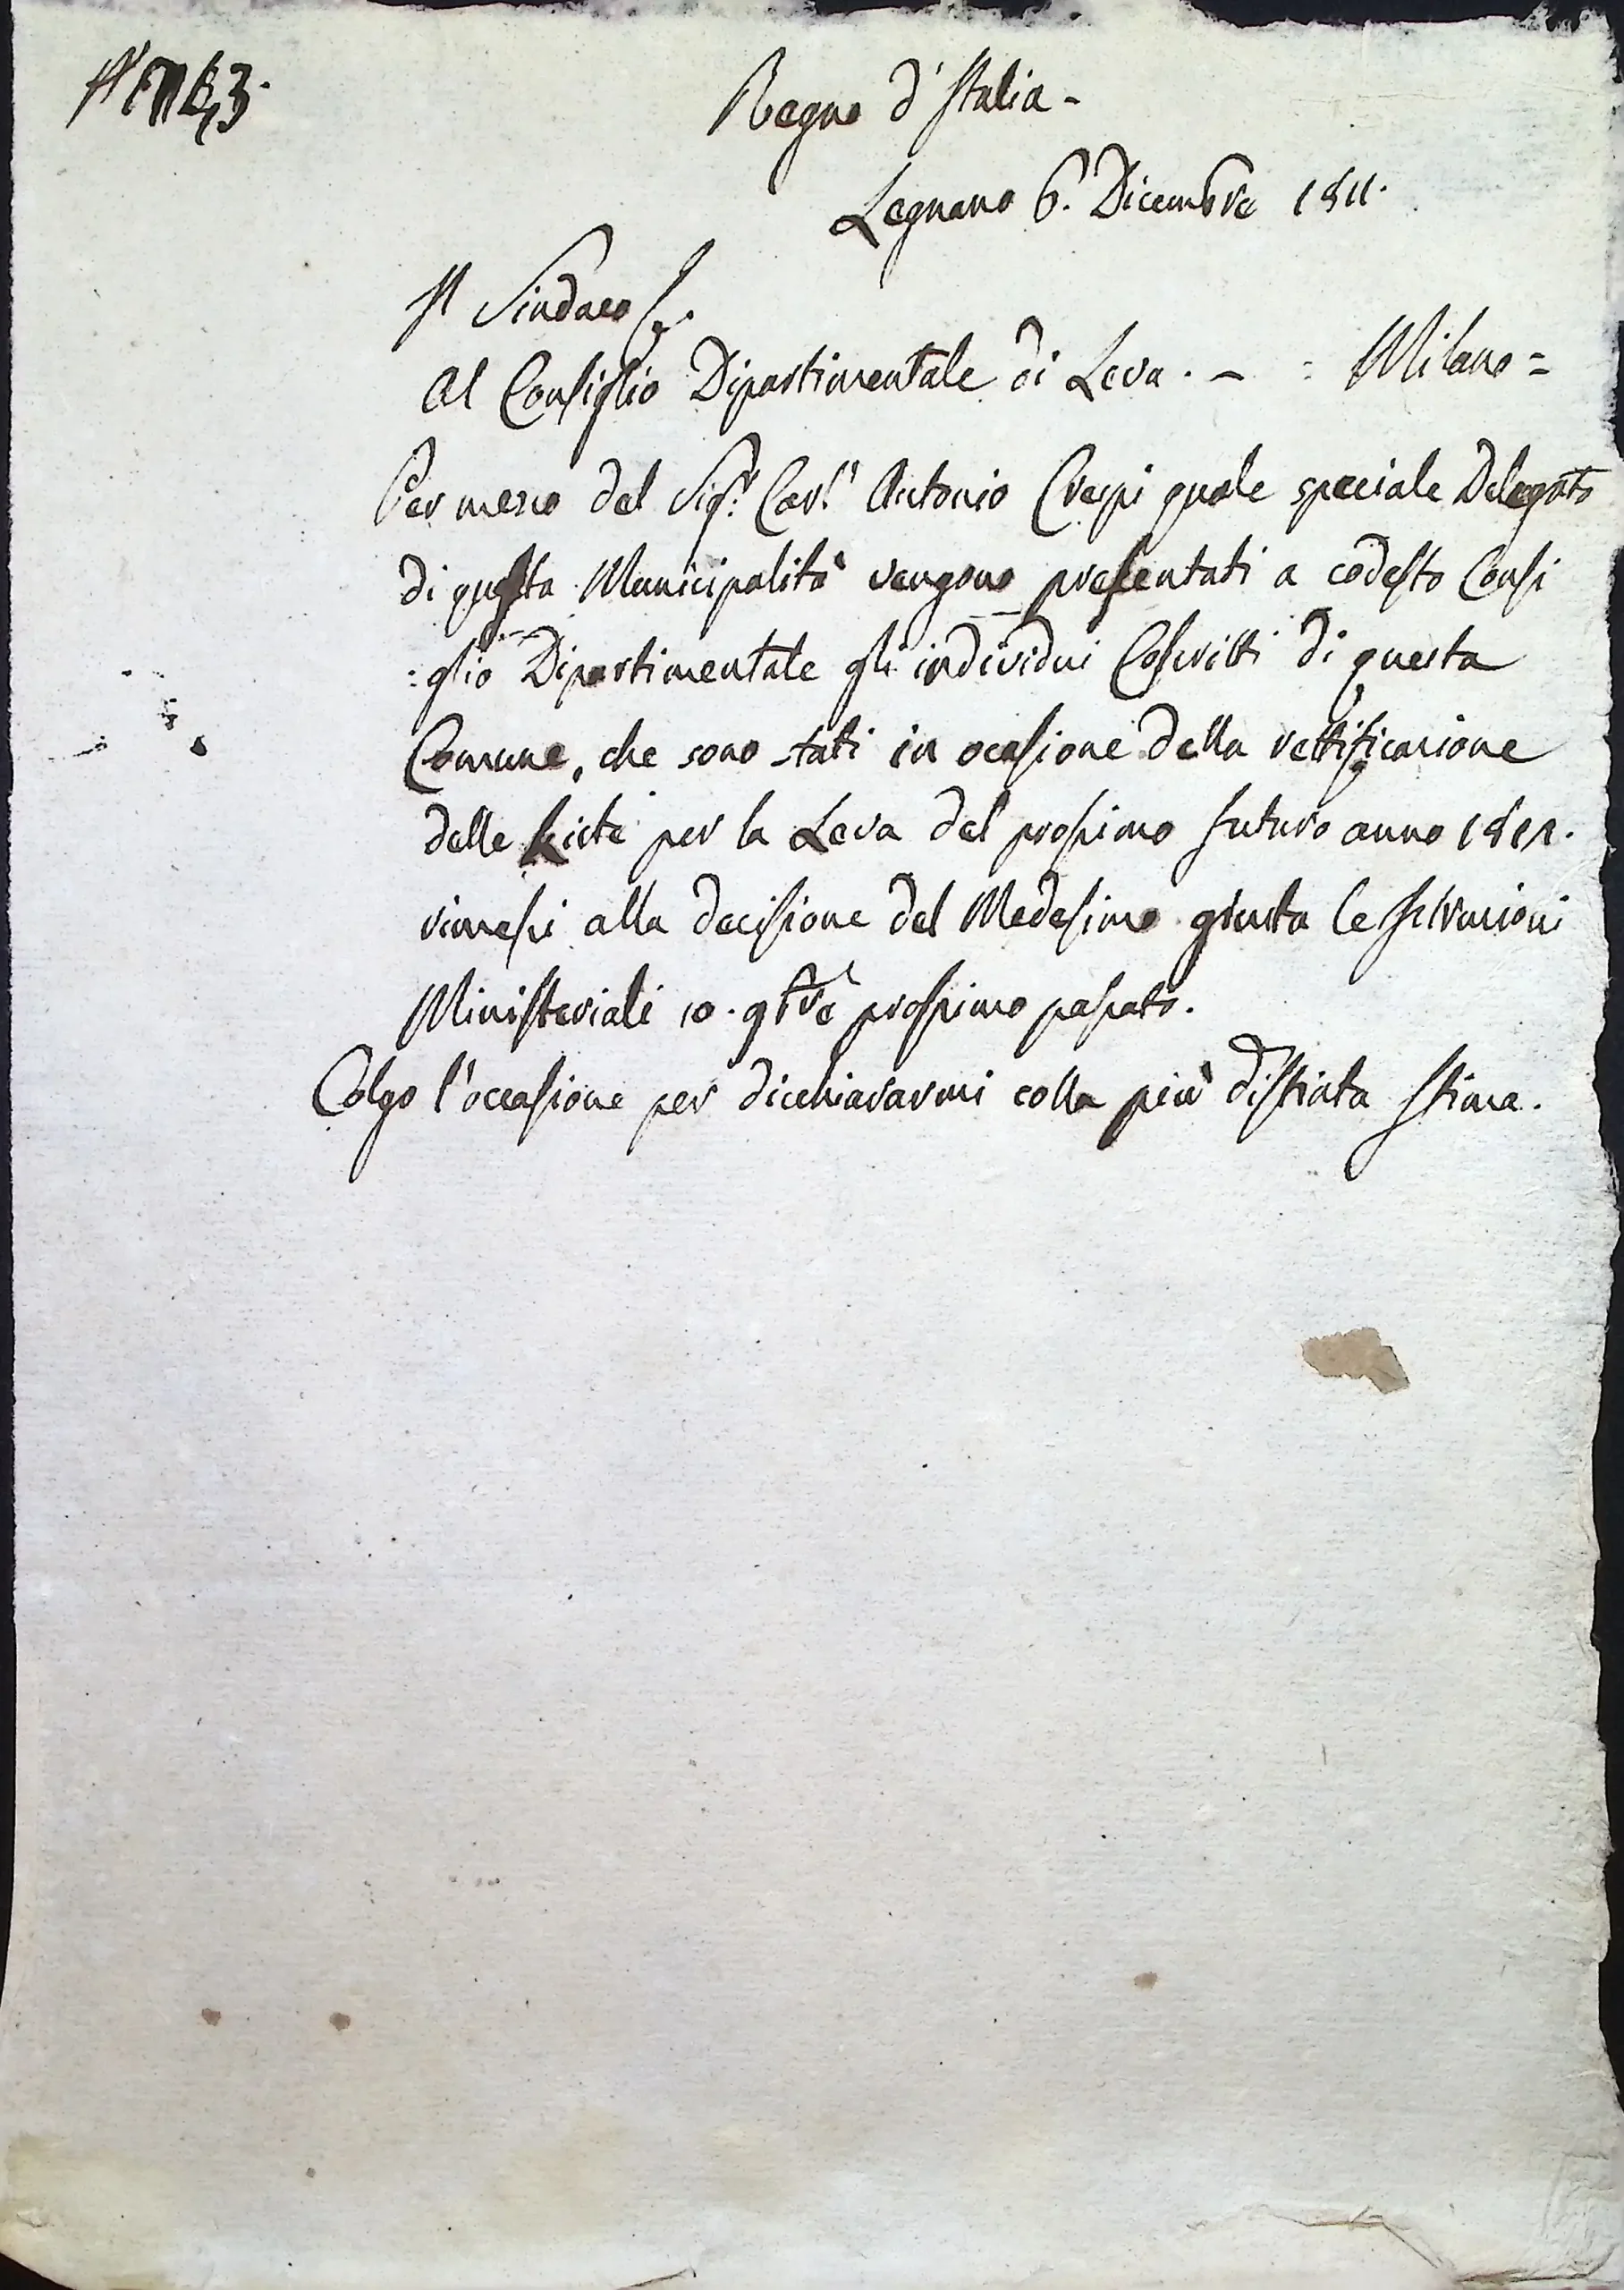 Regno d'Italia -
Legnano 6. Dicembre 1811.
Il Sindaco
Al Consiglio Dipartimentale di Leva. - = Milano =
Per mezzo del Sig.r Carl' Antonio Crespi quale speciale Delegato
di questa Municipalità vengono presentati a codesto Consi
:glio Dipartimentale gli individui Coscritti di questa
Comune, che sono stati in ocasione della rettificazione
delle Liste per la Leva del prossimo futuro anno 1812.
rimessi alla decisione del Medesimo giusta le Istruzioni
Ministeriali 10. 9bre prossimo passato.
Colgo l'occasione per dicchiararmi colla più distinta stima.